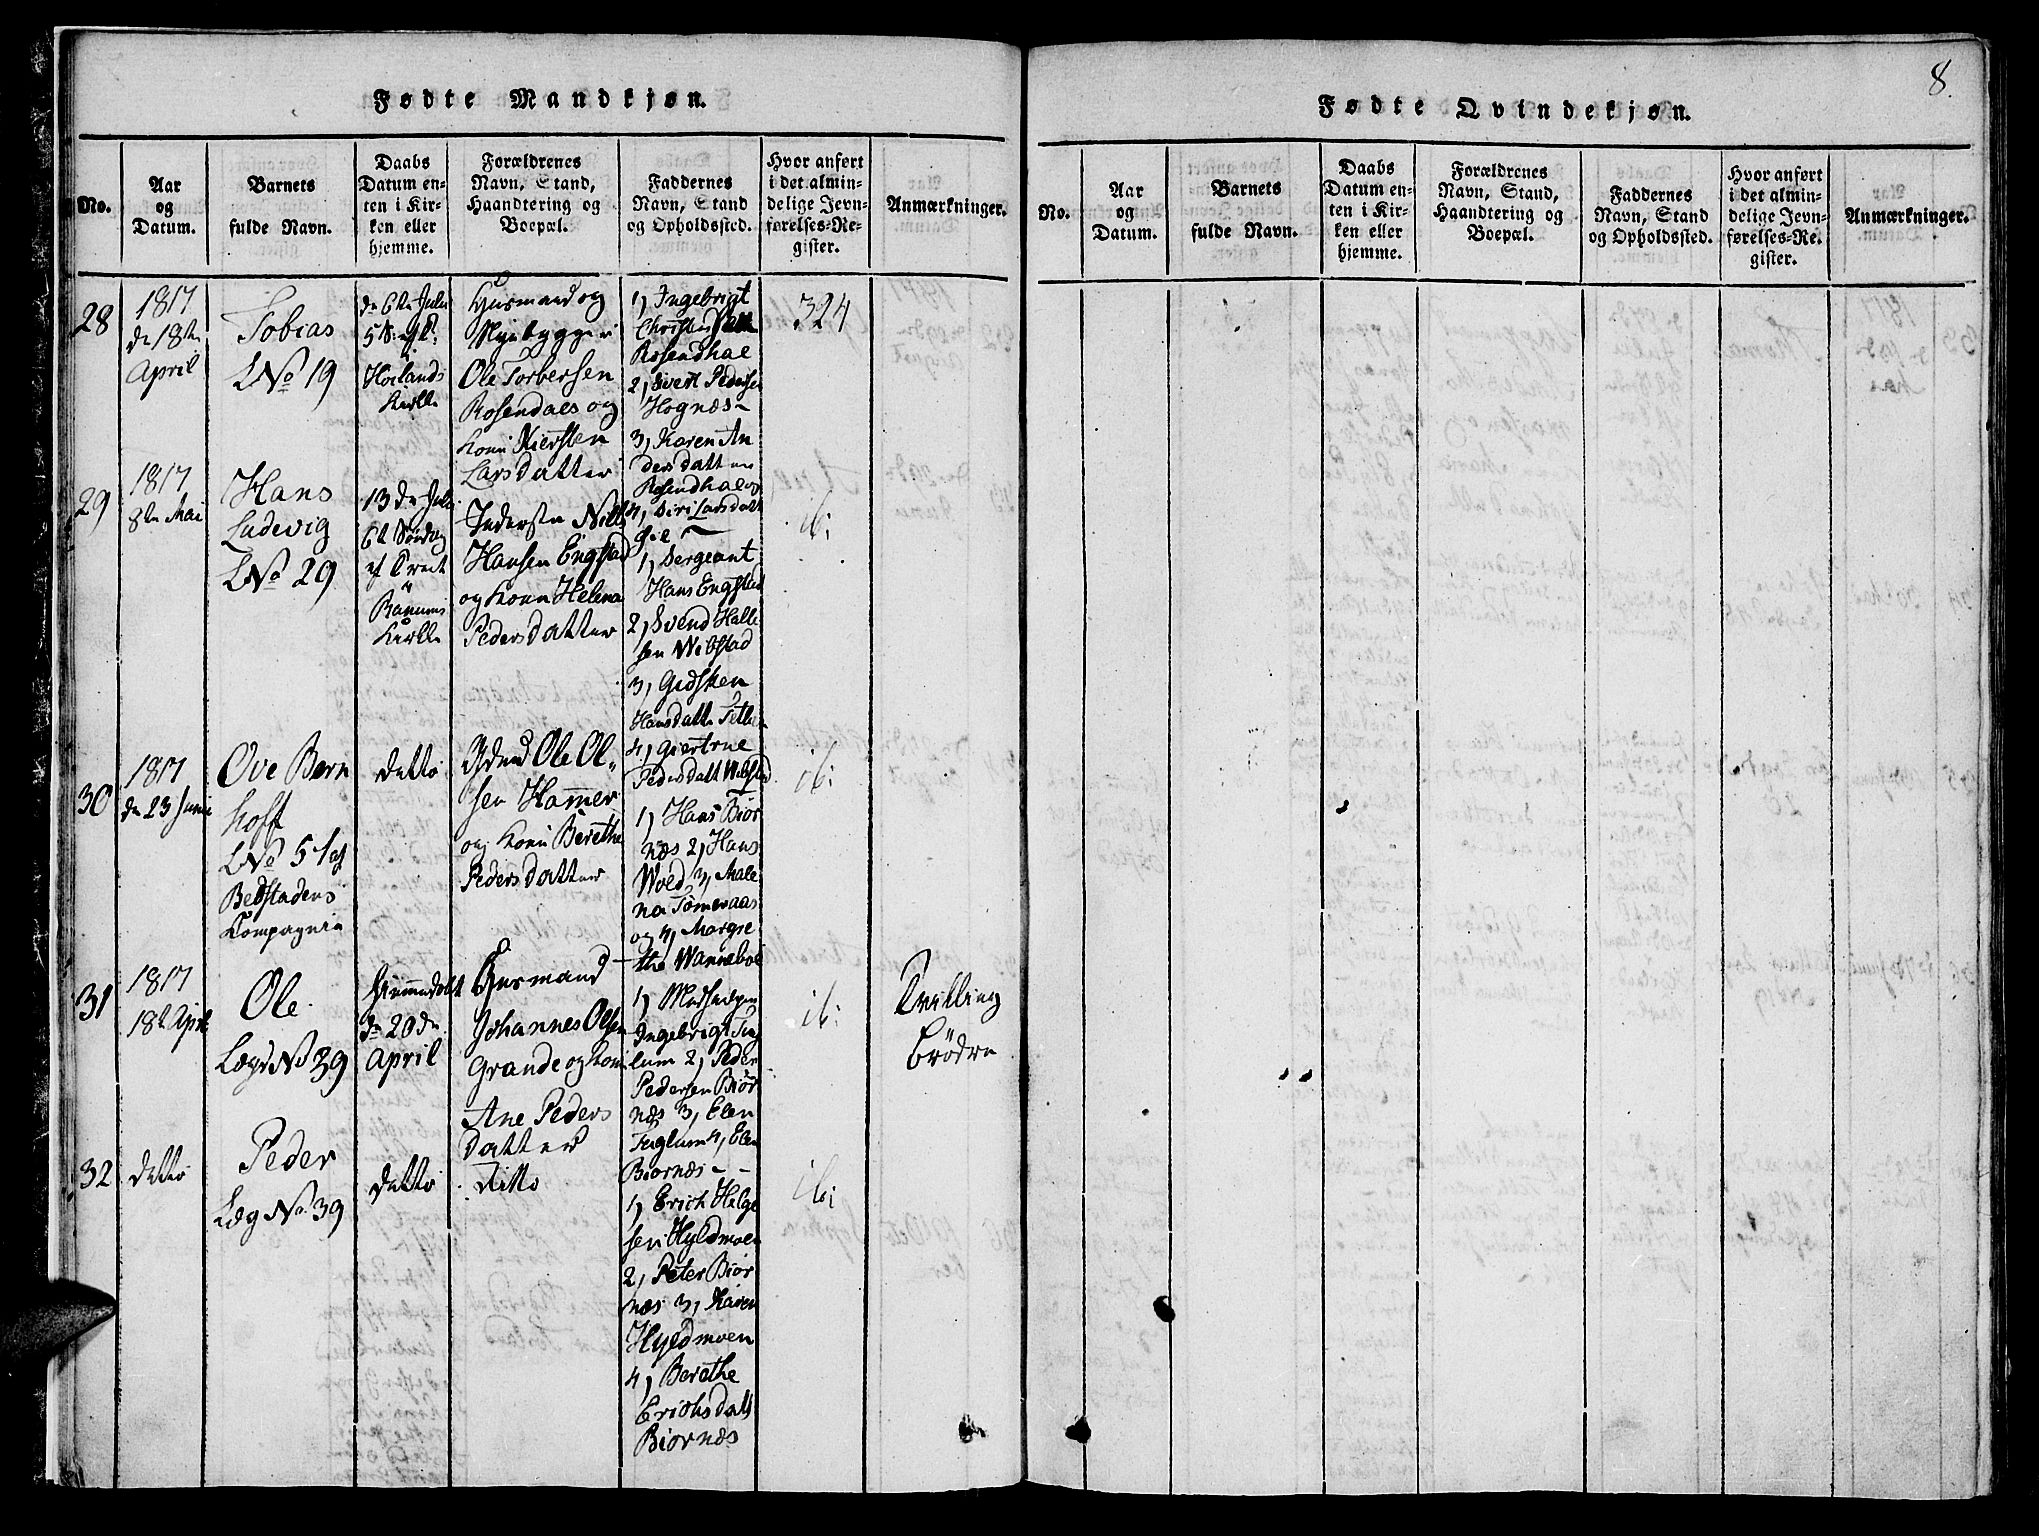 Fødte Mandkjøn.
No.
Aar
og
Datum.
Barnets
fulde Navn.
Daabs
Datum en-
ten i Kir-
ken eller
hjemme.
Forældrenes
Navn, Stand,
Haandtering og
Boepæl.
Faddernes
Navn, Stand
og Opholdssted.
Hvor anført
i det almin-
delige Jevn-
førelses-Re-
gister.
Anmærkninger.
28
1817
dn 18de
April
Tobias
LNo 19
dn 6te Julii
Hoilands
Kirke
Huusmand og
Nÿebÿgger
Ole Torbersen
Rosendaes og
Kone Kiersten
Larsdatter
1, Ingebrigt
Christens
Rosendhae
2, Sivert Pedersen
Hognæs-
3, Karen An
dersdatter
Rosendhae og
4, Siri Larsdatt
324
29
1817
8de Mai
Hans
Ludevig
LNo 29
13de Julii
6te Søndag
ef Trinit
i
Ranums
Kirke
Nills
Hansen Engstad
og Kone Helena
Pedersdatter
1, Sergeant
Hans Engstad
2, Svend Halle
sen Wibstad
3, Gidsken
Hansdattr
4, Giertrue
Pedersdatt Wibstad
ib:
30
1817
dn 23 Junii
Ove Bern
hoff
LNo 57 af
Bedstadens
Compagnie
detto
Ole Ol-
sen Hammer
og Kone Berethe
Pedersdatter
1, Hans Biør
næs 2, Hans
Woed 3, Male
na Tømeraas
og 4, Margre
the Wanneboe
ib:
31
1817
18de April
Ole
Lægd No 39
Hiemmedøbt
dn 20de
April
Huusmand
Johannes Olsen
Grande og Kone
Ane Peders
datter
1,
Ingebrigt Fug
lum 2, Peder
Pedersen Biør
næs 3, Elen
Fuglum 4, Elen
Biornæs -
ib:
Tvilling
Brødre
32
detto
Peder
Læg No. 39
detto
ditto
1, Erich Helge
sen Hyldmoen
2, Peter Biør
næs 3, Karen
Hyldmoen
4, Berethe
Erichsdatt
Biornæs
ib:
8.
Fødte Qvindekjøn.
No.
Aar
og
Datum.
Barnets
fulde Navn.
Daabs
Datum en-
ten i Kir-
ken eller
hjemme.
Forældrenes
Navn, Stand,
Haandtering og
Boepæl.
Faddernes
Navn, Stand
og Opholdssted.
Hvor anført
i det almin-
delige Jevn-
førelses-Re.
gister.
Anmærkninger.